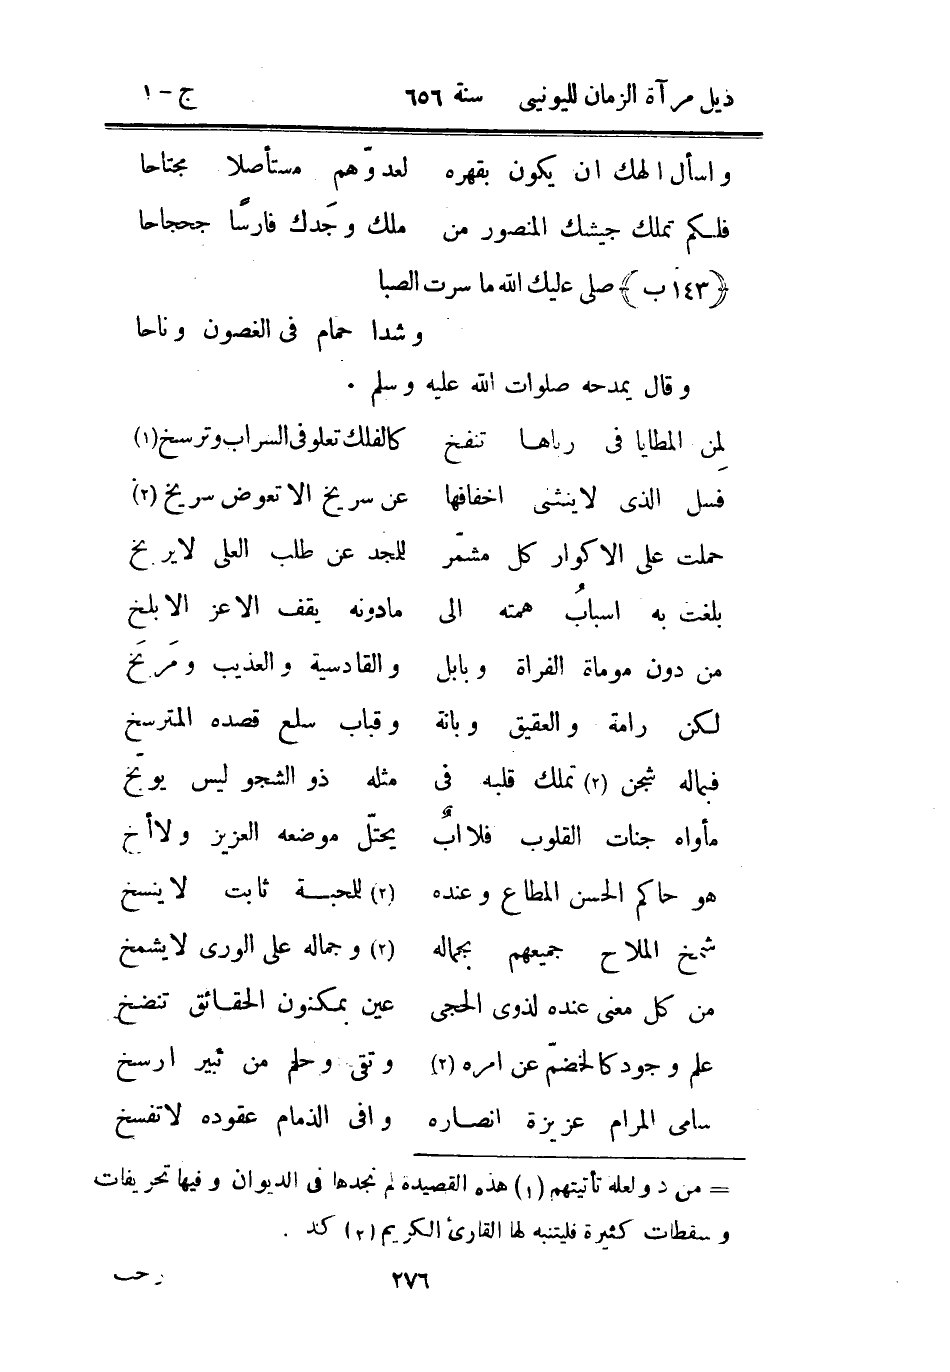 ذيل مرآة الزمان لليونيى سنة ٦٥٦ ج - ١
و اسأل الهك ان يكون بقهره لعدوّهم مستأصلا مجتاحا
فلكم تملك جيشك المنصور من ملك وجَدك فارسًا جحجاحا
﴿١٤٣ ب﴾ صلى عليك الله ما سرت الصبا
و شدا حمام فى الغصون و ناحا
و قال يمدحه صلوات الله عليه و سلم .
لمن المطايا فى رباها تنفخ كالفلك تعلو فى السراب و ترسخ (١)
فسل الذى لاينثنى اخفافها عن سريخ الا تعوض سريخ (٢)
حملت على الاكوار كل مشمّر للجد عن طلب العلى لايريخ
بلغت به اسبابُ همته الى مادونه يقف الاعز الابلخ
من دون موماة الفراة و بابل و القادسية و العذيب و مَرَيخ
لكن رامة و العقيق و بانة و قباب سلع قصده المترسخ
فباله شجن (٢) تملك قلبه فى مثله ذو الشجو ليس يوبّخ
مأواه جنات القلوب فلا ابٌ يحتلّ موضعه العزيز و لا أخ
هو حاكم الحسن المطاع و عنده (٢) للحبة ثابت لا ينسخ
شمخ الملاح جميعهم بجماله (٢) و جماله على الورى لايشمخ
من كل معنى عنده لذوى الحجى عين بمكنون الحقائق تنضخ
علم و جود كالخضمّ عن امره (٢) و تقى و حلم من ثبير ارسخ
سامى المرام عزيزة انصاره و افى الذمام عقوده لاتفسخ
= من د و لعله تأتيتهم (١) هذه القصيدة لم نجدها فى الديوان و فيها تحريفات
و سقطات كثيرة فليتنبه لها القارئ الكريم (٢) كذ .
٢٧٦ رحب